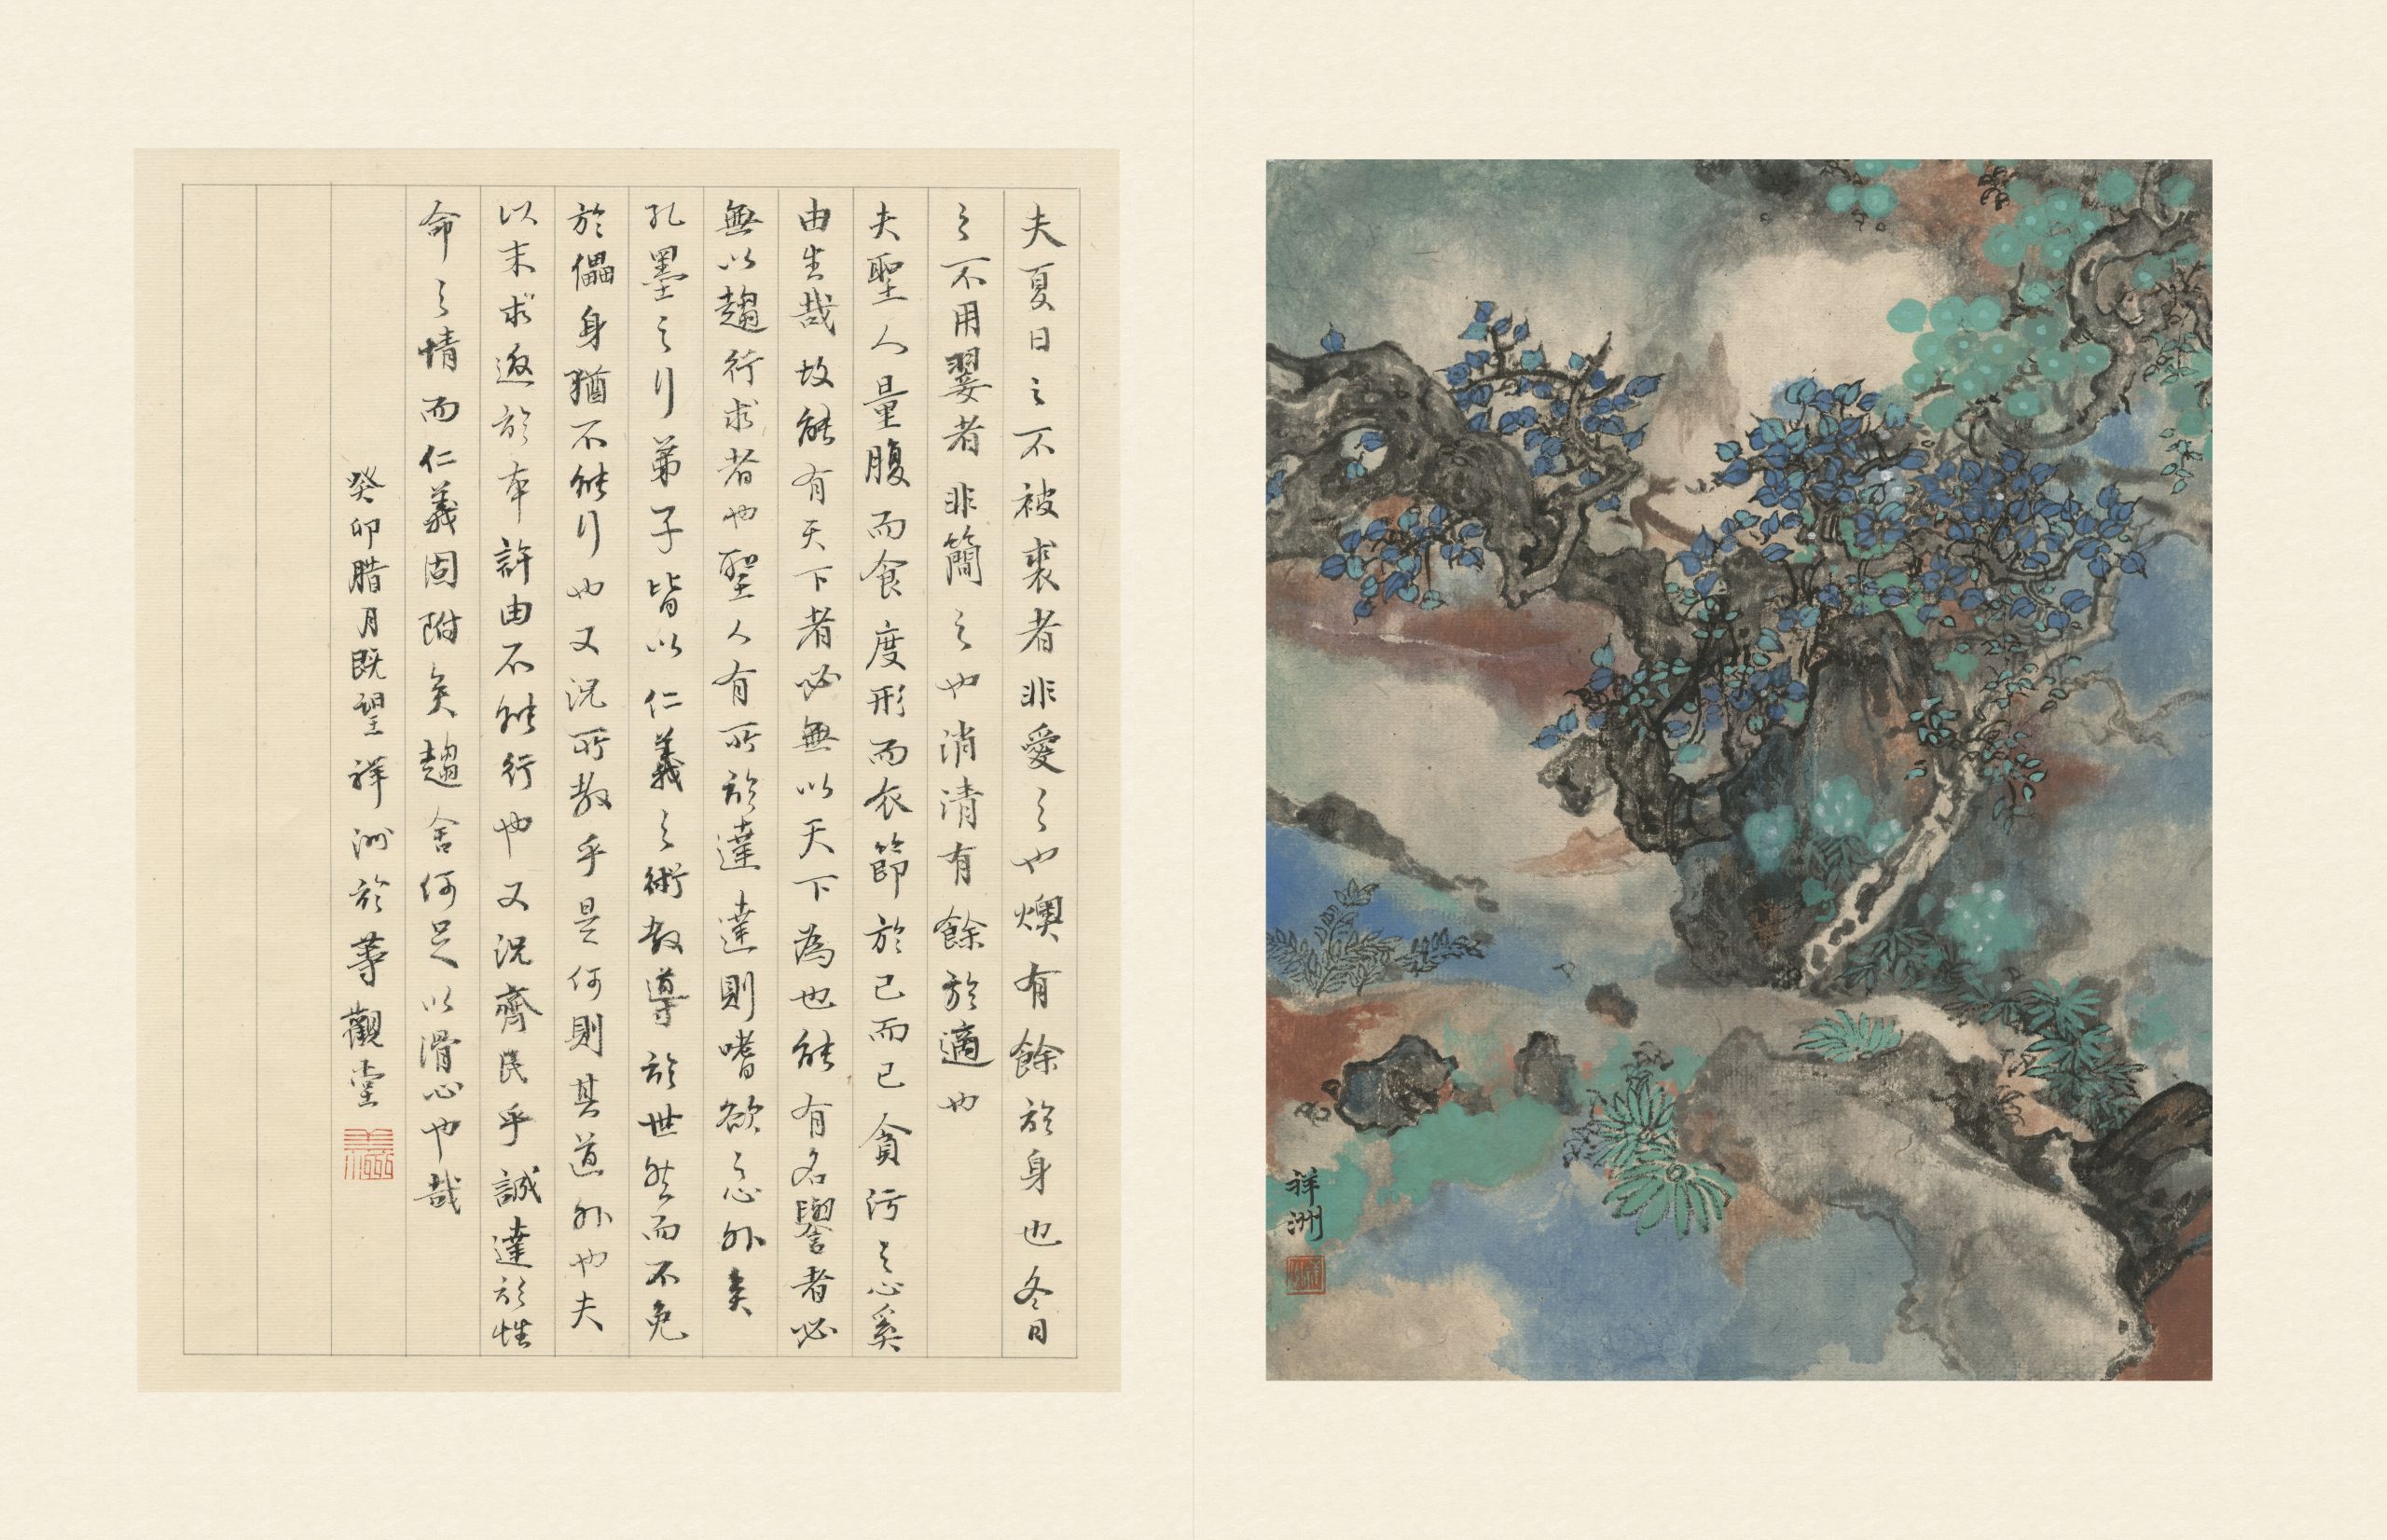 夫夏日之不被裘者非愛之也燠有餘於身也冬日
之不用翣者非簡之也消清有餘於適也
夫聖人量腹而食度形而衣節於己而已貪污之心奚
由生哉故能有天下者必無以天下為也能有名譽者必
無以趨行求者也聖人有所於達達則嗜欲之心外矣
孔墨之行弟子皆以仁義之術教導於世然而不免
於儡身猶不能行也又況所教乎是何則其道外也夫
以末求返於本許由不能行也又況齊民乎誠達於性
命之情而仁義固附矣趨舍何足以滑心也哉
癸卯腊月既望祥洲於等觀堂
祥洲